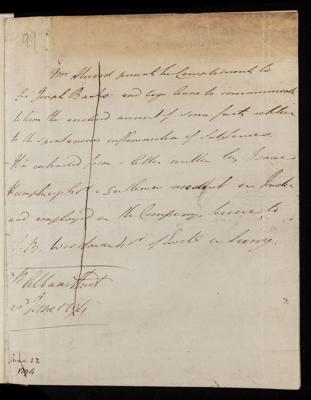 99
Mr Howard presents his Compliments to
Sir Joseph Banks and begs leave to communicate
to him the enclosed account of some facts relative
to the spontaneous inflammation of Substances.
It is extracted from a letter written by Isaac
Humphrys Esqr a Gentleman resident in India
and employed in the Companys Service, to
J. B. Woodman Esqr of Ewell in Surry.
St Albans Street
22d June 1794
June 22
1794